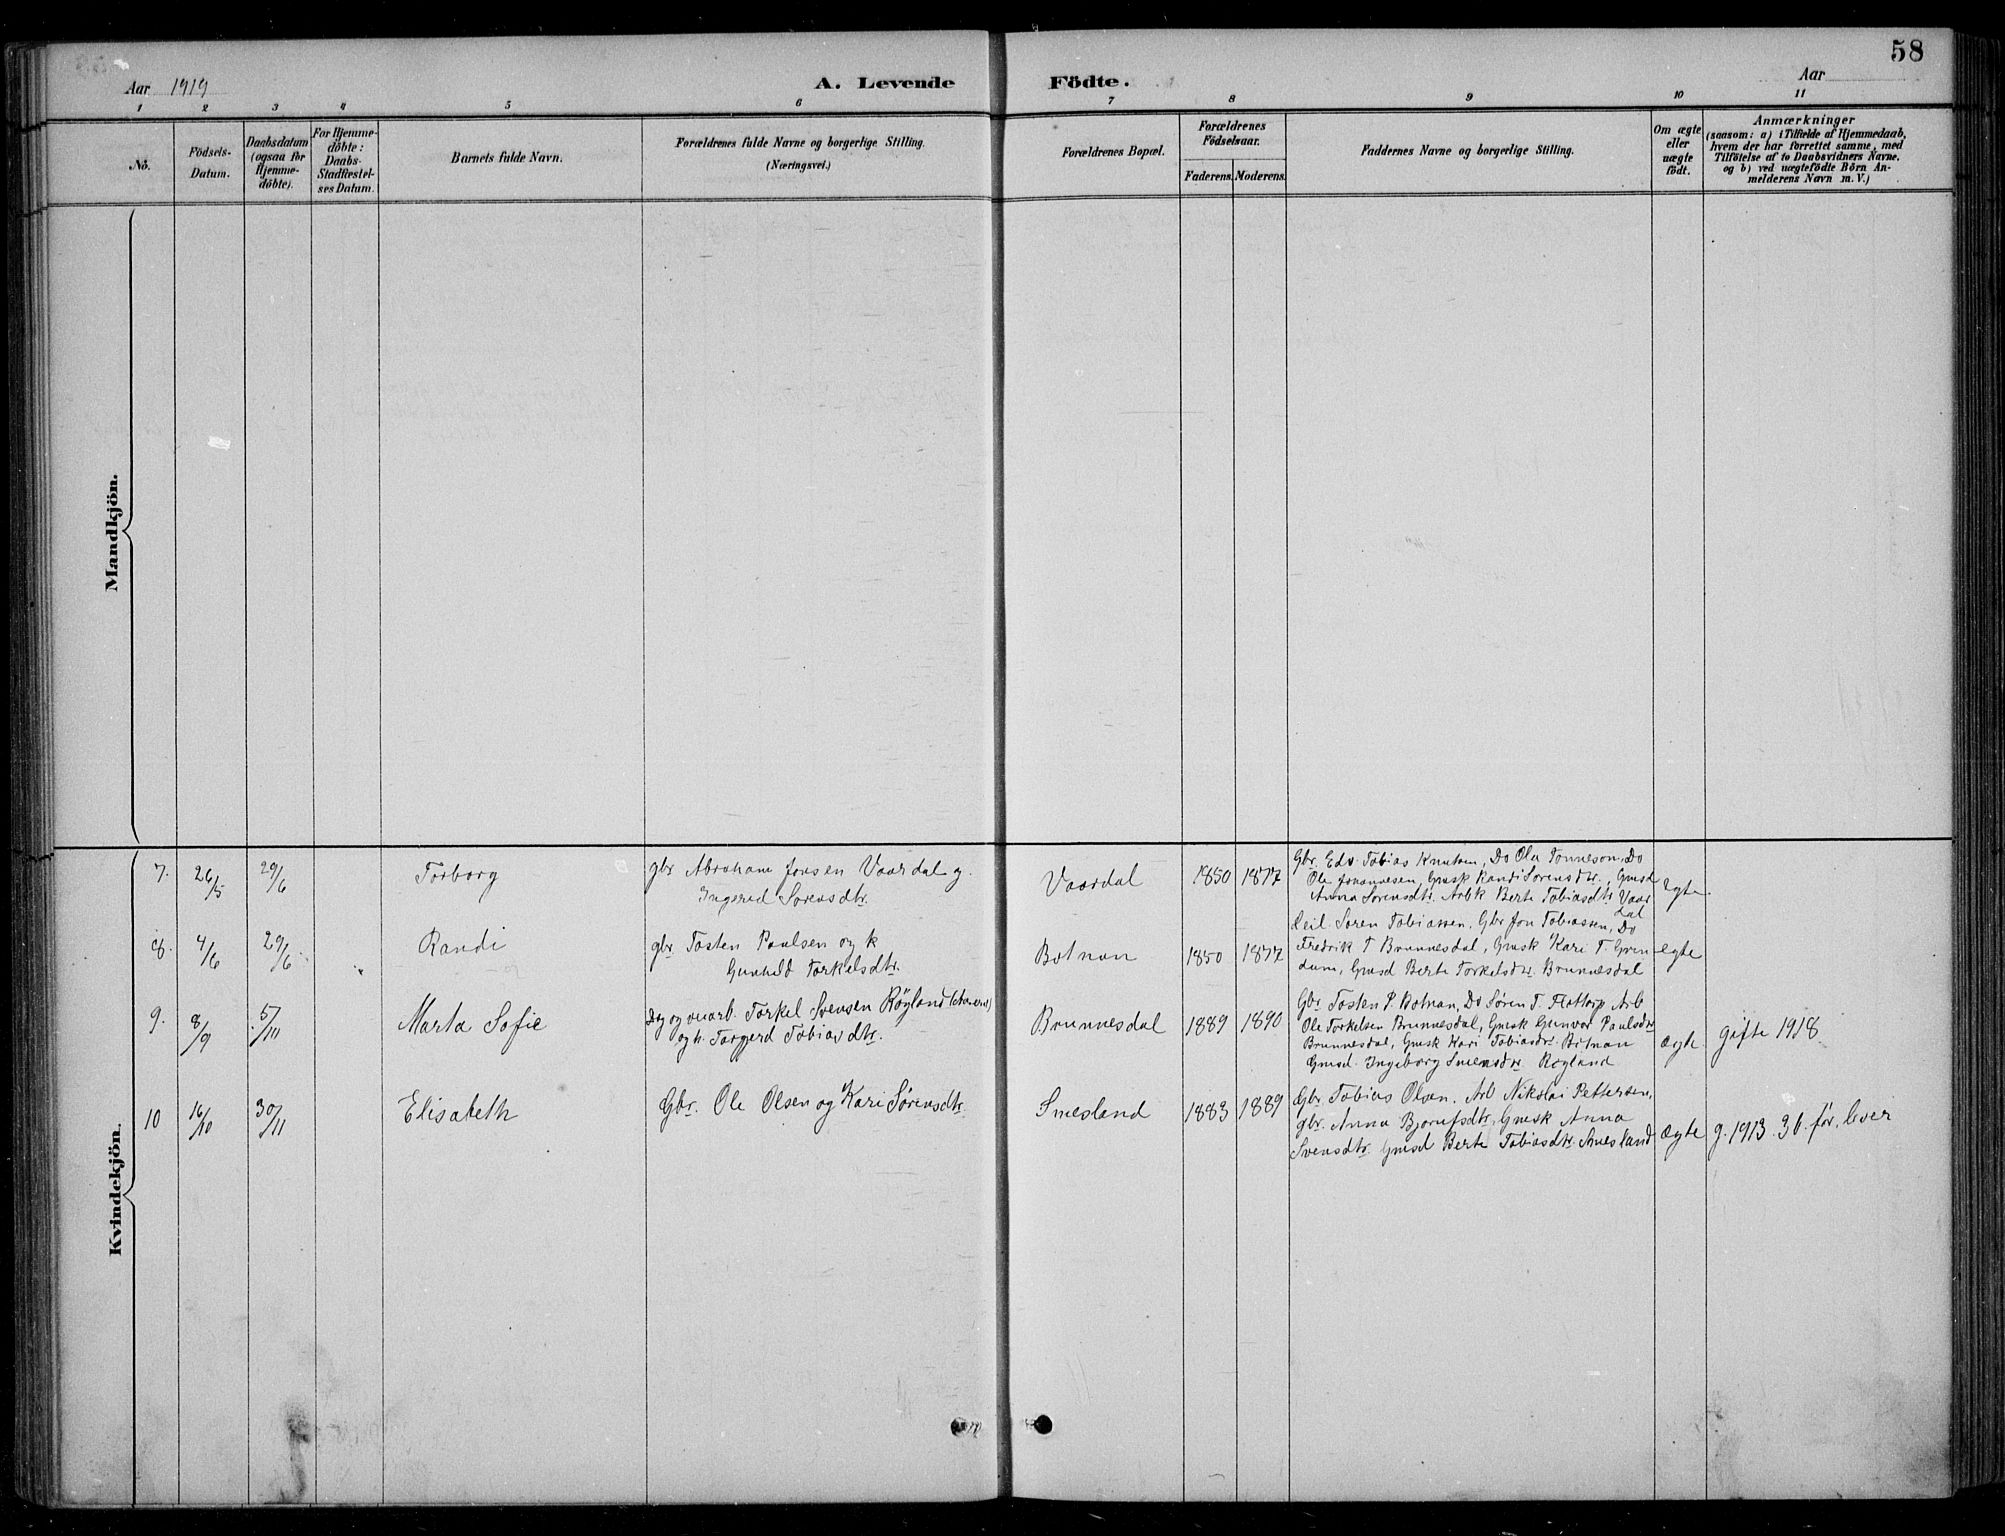 58
Aar 1919
A. Levende Födte.
Aar
1 2 3 4 5 6 7 8 9 10 11
No.
Födsels-
Datum.
Daabsdatum
(ogsaa for
Hjemme-
döbte).
For Hjemme-
döbte:
Daabs-
Stadfæstel-
ses Datum.
Barnets fulde Navn.
Forældrenes fulde Navne og borgerlige Stilling.
(Næringsvei.)
Forældrenes Bopæl.
Forældrenes
Födselsaar.
Faderens. Moderens.
Faddernes Navne og borgerlige Stilling.
Om ægte
eller
uægte
födt.
Anmærkninger
(saasom: a) i Tilfælde af Hjemmedaab,
hvem der har forrettet samme, med
Tilföielse af to Daabsvidners Navne,
og b) ved uægtefödte Börn An-
melderens Navn m. V.)
Mandkjön.
Kvindekjön.
7. 26/5 29/6 Torborg
gbr Abraham Jonsen Vaardal g.
Ingered Sorensdtr.
Vaardal 1850 1877
Gbr. Edv. Tobias Knutsen, Do Ola Tonneson, Do
Ole Johannesen, Gmsk Randi Sorensdtr., Gmsd
Anna Sorensdtr. Arbk Berte Tobiasdtr Vaar
dal
ægte.
8. 4/6 29/6 Randi
gbr. Tosten Paulsen og k
Gunhild Torkelsdtr.
Botnan 1850 1877
Soren Tobiassen, Gbr Jon Tobiassen, Do
Fredrik T Brunnesdal, Gmsk Kari T.
Gmsd Berte Torkelsdtr. Brunnesdal
ægte
9. 8/9 5/11 Marta Sofie
Torkel Svensen Röyland
og h. Torgerd Tobiasdtr.
Brunnesdal 1889 1890
Gbr Tosten P. Botnan, Do Sören T. Flottorp Arb
Ole Torkelsen Brunnesdal, Gmsk Gunvor Paulsdtr
Brunnesdal, Gmsk Kari Tobiasdtr. Botnan
Gmsd. Ingeborg Svensdtr Rogland
ægte. gifte 1918
10 16/10 30/11 Elisabeth
Gbr. Ole Olsen og Kari Sörensdtr.
Smesland 1883 1889
Gbr Tobias Olsen. Arb Nikolai Pettersen,
gbr. Anna Bjorufsdtr, Gmsk Anna
Svensdtr. Gmsd Berte Tobiasdtr. Smesland
ægte g. 1913. 3 b. för, lever